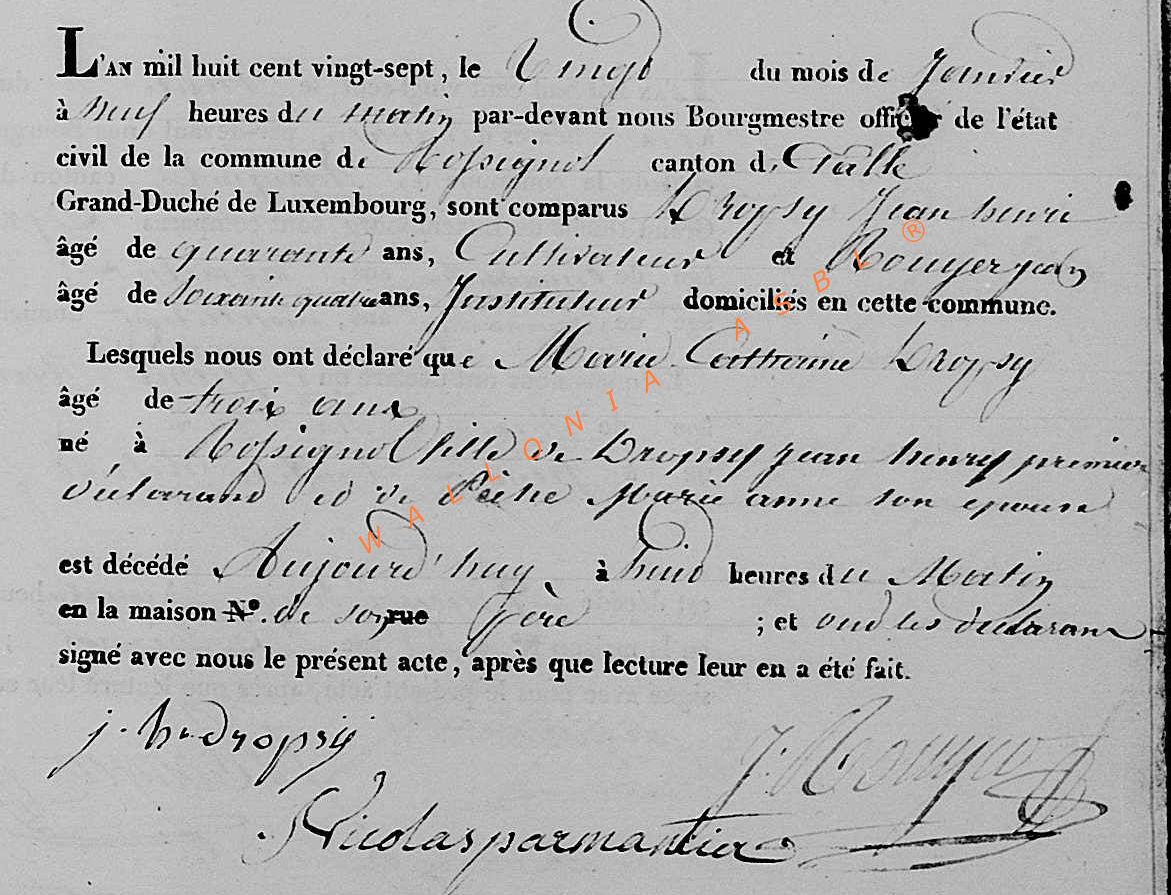 L'AN mil huit cent vingt-sept, le Vingt du mois de Janvier
à neuf heures du matin par-devant nous Bourgmestre officier de l'état
civil de la commune de Rossignol canton d'Etalle
Grand-Duché de Luxembourg, sont comparus Dropsy Jean henri
âgé de quarante ans, Cultivateur et Rouyer jean
âgé de soixante quatre ans, Instituteur domiciliés en cette commune.
Lesquels nous ont déclaré que Marie Catherine Dropsy
âgé de trois ans
né à Rossignol fille de Dropsy jean henry premier
déclarant et de Marie anne son epouse
est décédé Aujourd'huy à huit heures du Matin
en la maison N.º de son rue père ; et ont les déclarans
signé avec nous le présent acte, après que lecture leur en a été fait.
j. hr dropsy
J. Rouyer
Nicolas parmantier
WALLONIA ASBL ®